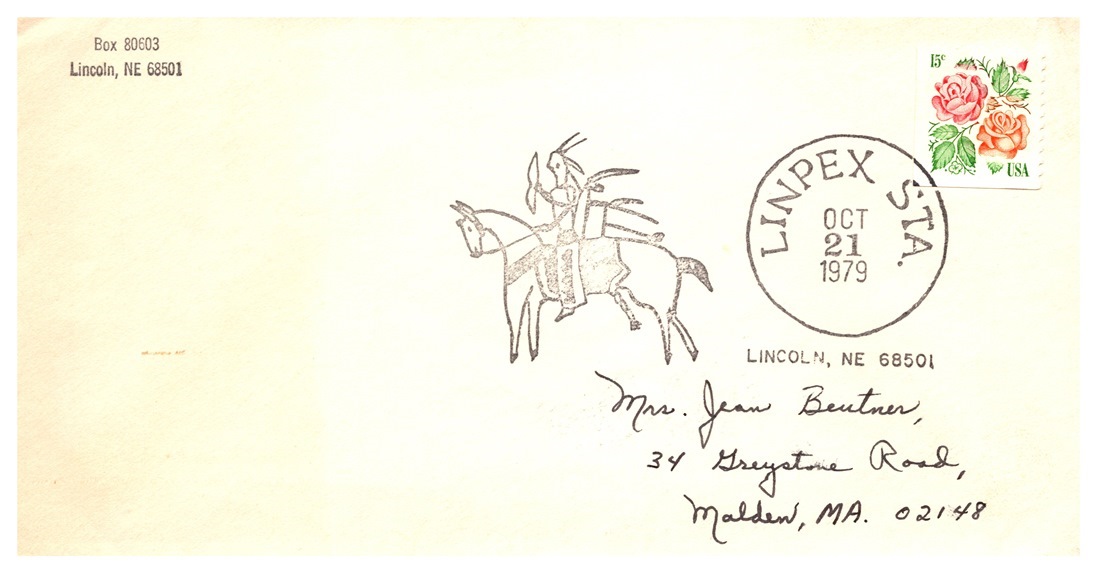 Box 80603
Lincoln, NE 68501
15c
USA
LINPEX STA.
OCT
21
1979
LINCOLN, NE 68501
Mrs. Jean Beutner,
34 Greystone Road,
Malden, MA. 02148